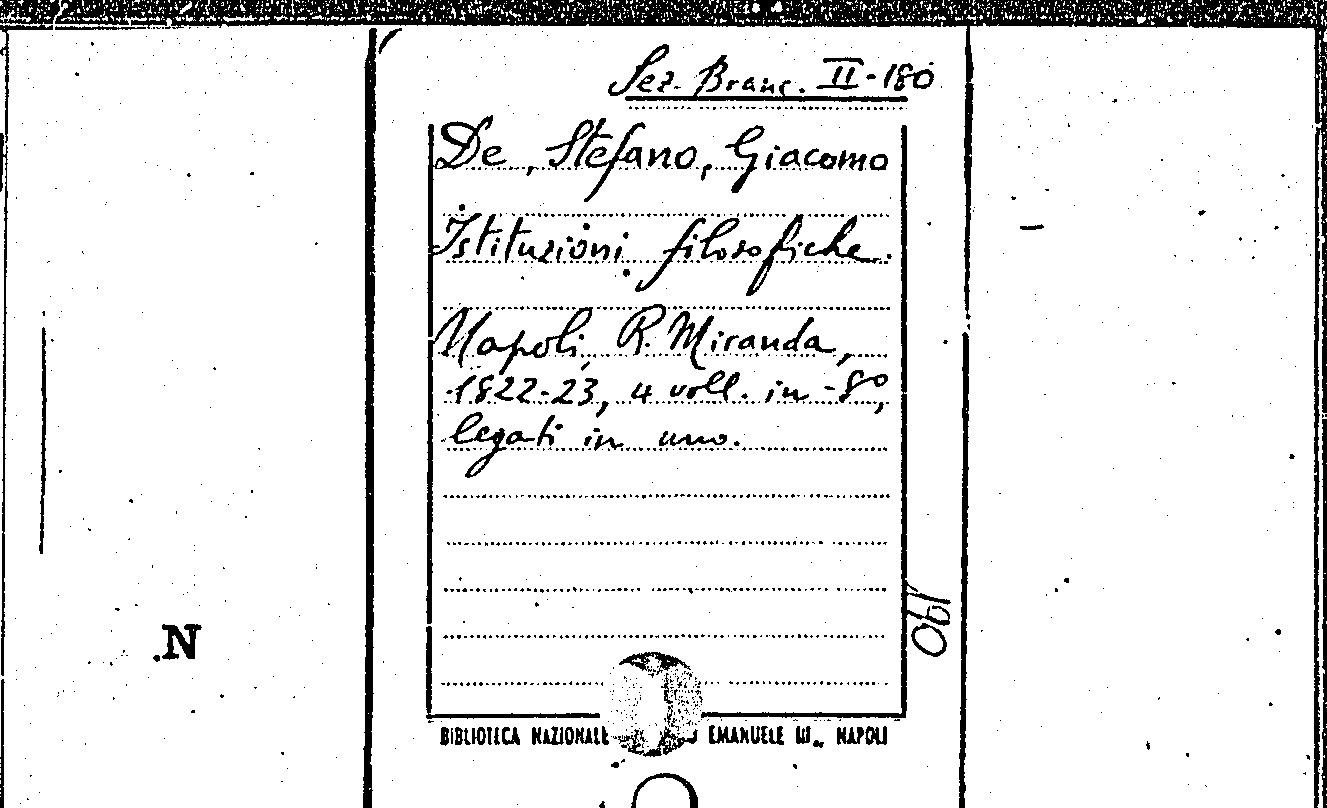 Sez. Branc. II-180
De Stefano, Giacomo
Istituzioni filosofiche.
Napoli, R. Miranda,
1822-23, 4 voll. in-8°,
legati in uno.
190
.N
BIBLIOTECA NAZIONALE EMANUELE III„ NAPOLI